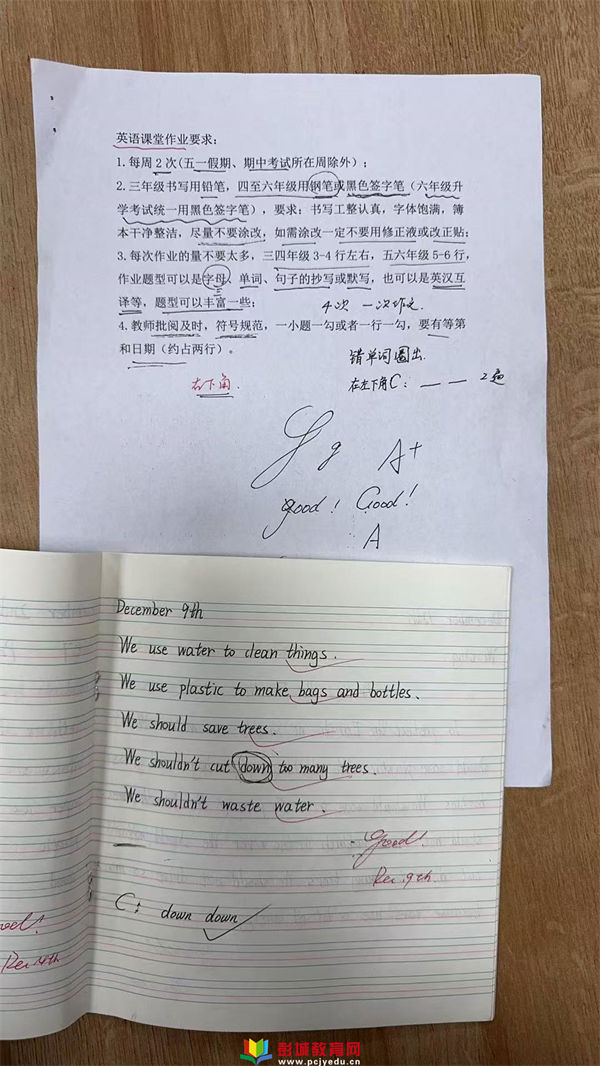 英语课堂作业要求：
1.每周2次(五一假期、期中考试所在周除外)；
2.三年级书写用铅笔，四至六年级用钢笔或黑色签字笔（六年级升
学考试统一用黑色签字笔），要求：书写工整认真，字体饱满，簿
本干净整洁，尽量不要涂改，如需涂改一定不要用修正液或改正贴；
3.每次作业的量不要太多，三四年级3-4行左右，五六年级5-6行，
作业题型可以是字母、单词、句子的抄写或默写，也可以是英汉互
译等，题型可以丰富一些；
4次 一次作文.
4.教师批阅及时，符号规范，一小题一勾或者一行一勾，要有等第
和日期（约占两行）。
错单词圈出.
右下角.
在左下角C: — — 2遍
g A+
good! Good!
A
December 9th
We use water to clean things.
We use plastic to make bags and bottles.
We should save trees.
We shouldn't cut down too many trees.
We shouldn't waste water.
Good!
Dec. 9th.
C: down down
Dec. 4th
彭城教育网
www.pcjyedu.cn